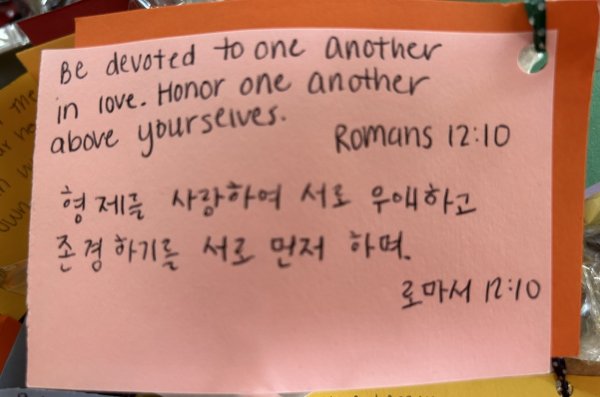 Be devoted to one another
in love. Honor one another
above yourselves.
Romans 12:10
형제를 사랑하여 서로 우애하고
존경하기를 서로 먼저 하며.
로마서 12:10